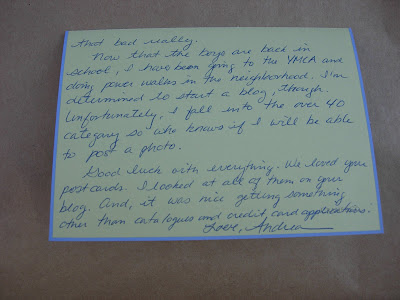 that bad really.
Now that the boys are back in
school, I have been going to the YMCA and
doing power walks in the neighborhood. I'm
determined to start a blog, though.
Unfortunately, I fall into the over 40
category so who knows if I will be able
to post a photo.
Good luck with everything. We loved your
postcards. I looked at all of them on your
blog. And, it was nice getting something
other than catalogues and credit card applications.
Love, Andrea